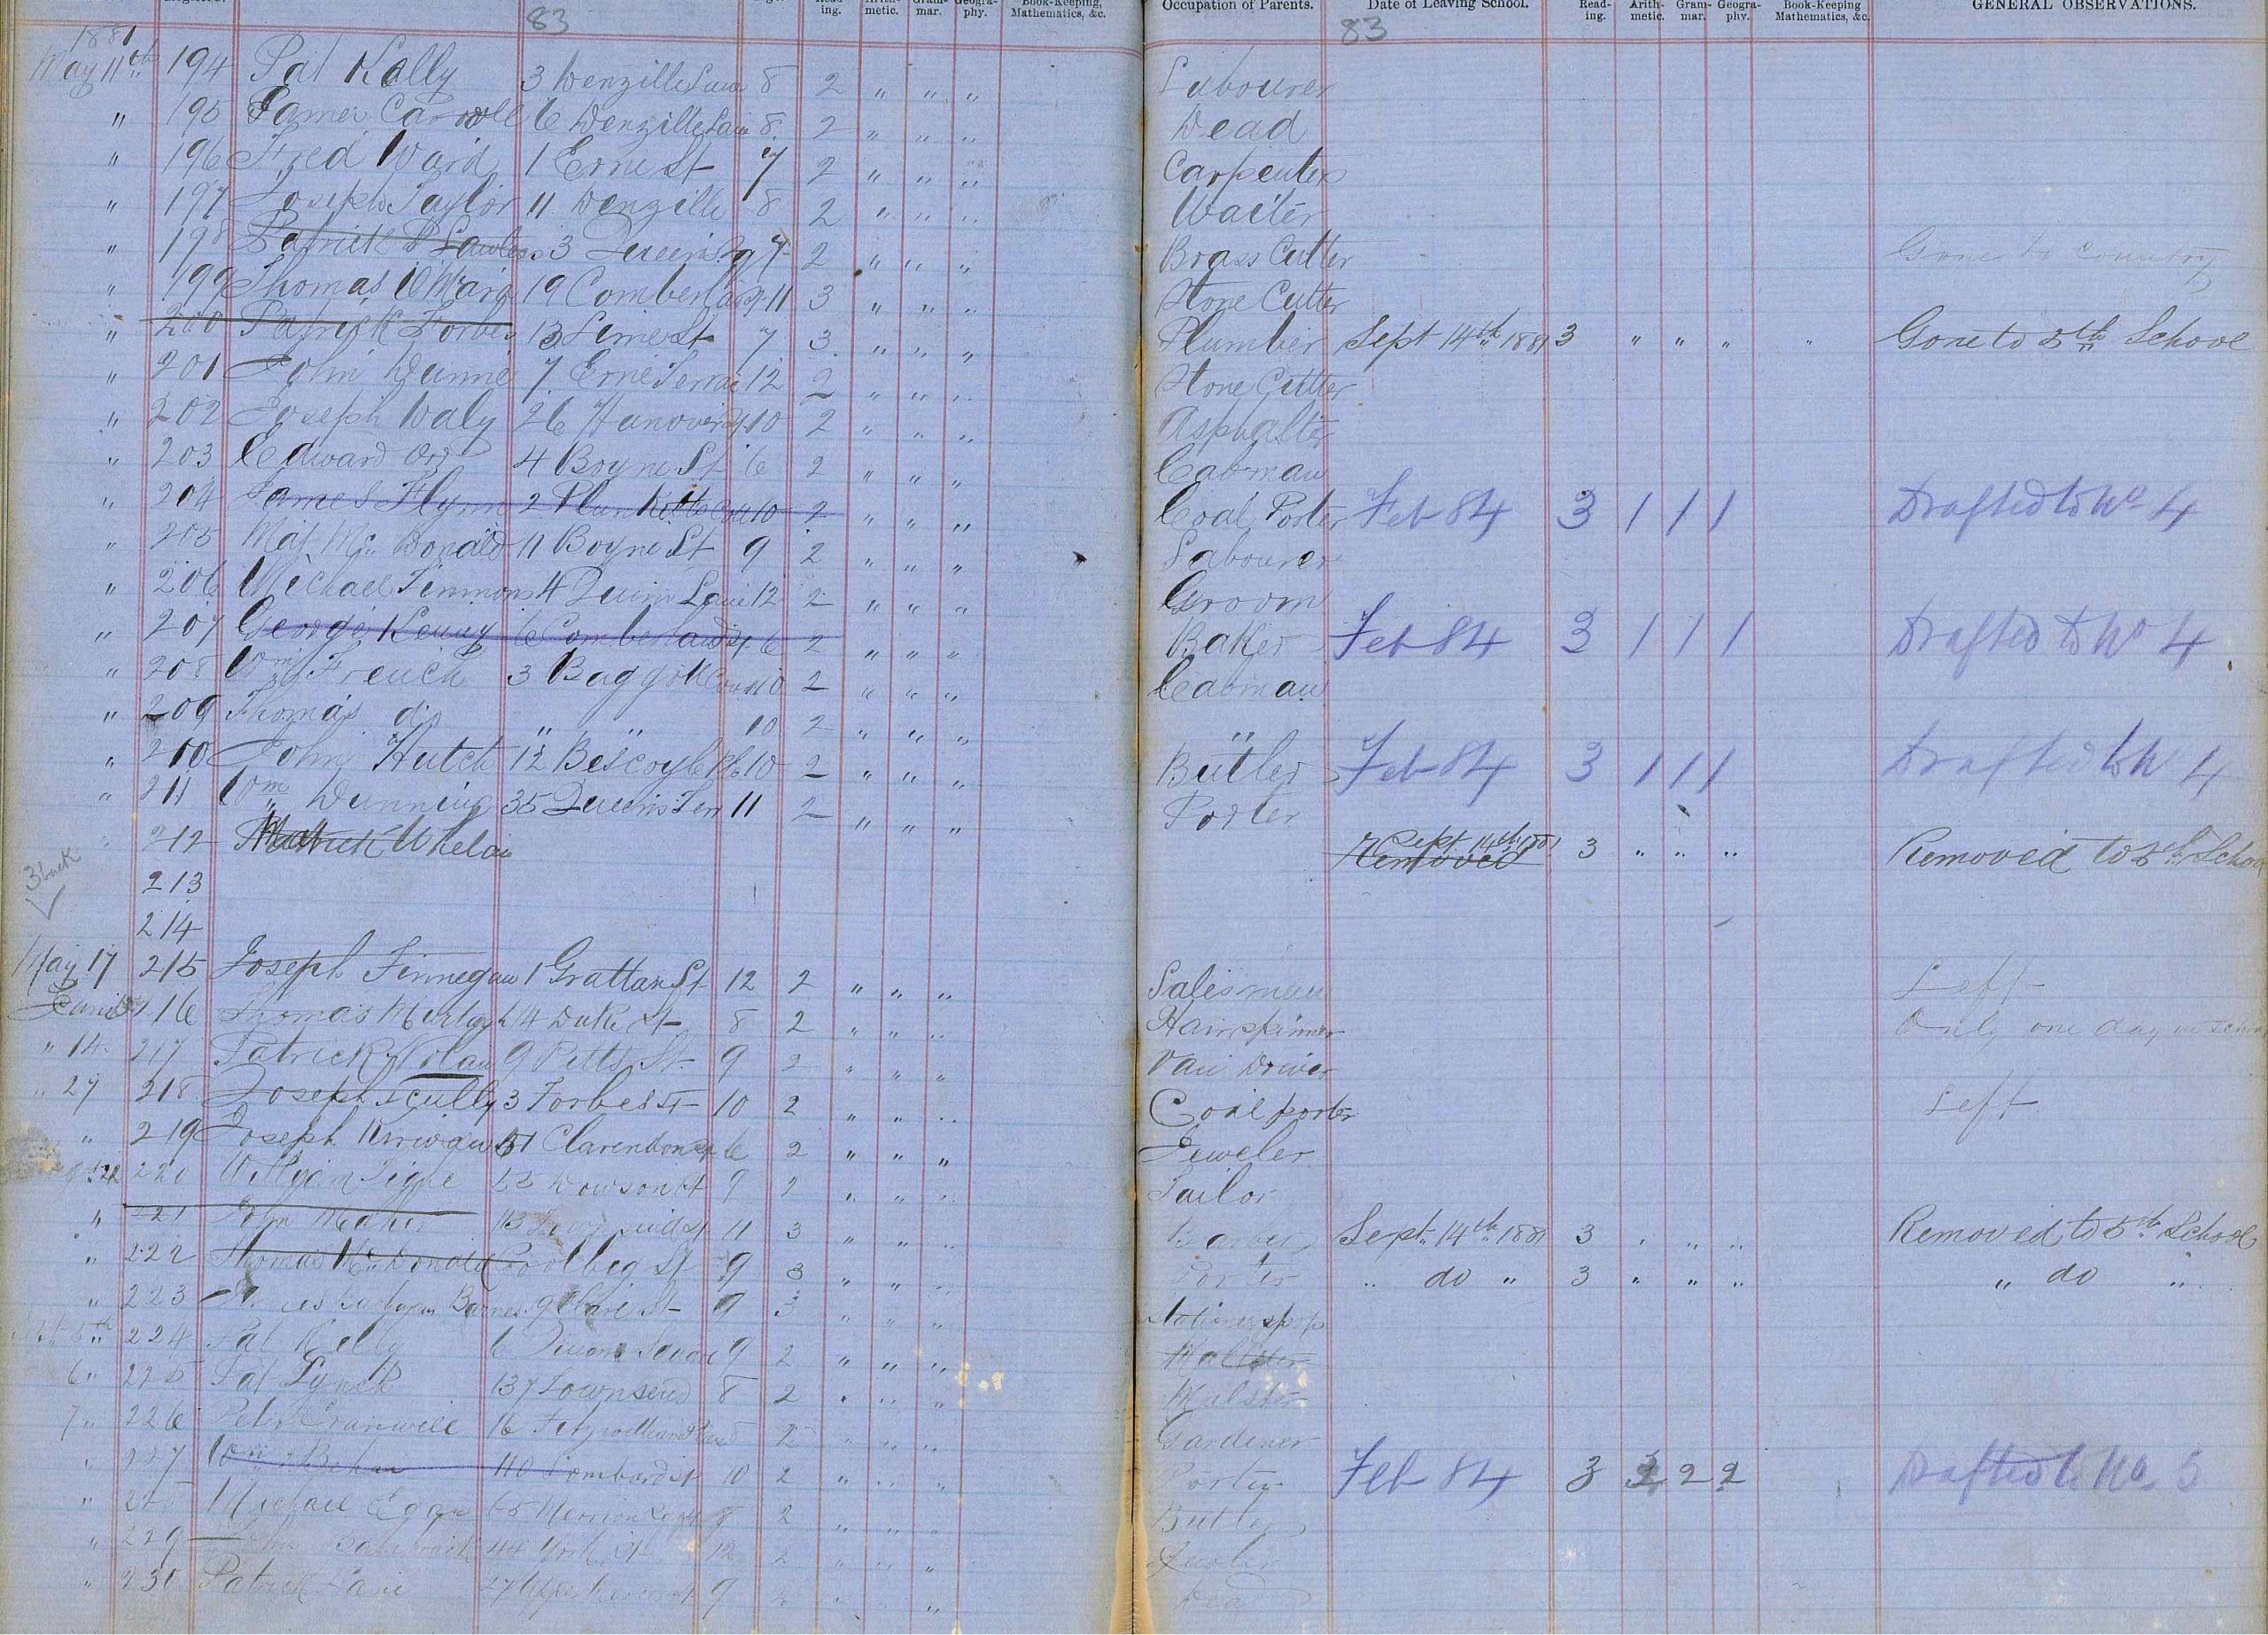 Read- ing. Arith- metic. Gram- mar. Geogra- phy. Book-Keeping, Mathematics, &c. Occupation of Parents. Date of Leaving School. Read- ing. Arith- metic. Gram- mar. Geogra- phy. Book-Keeping Mathematics, &c. GENERAL OBSERVATIONS.
83 83
1881
May 11th 194 Pat Kelly 3 Denzille Lane 8 2 " " " Labourer
" 195 James Carroll 6 Denzille Lane 8 2 " " " Dead
" 196 Fred Ward 1 Erne St 7 2 " " " Carpenter
" 197 Joseph Taylor 11 Denzille 8 2 " " " Waiter
" 198 Patrick Lawless 3 Queens Sq 7 2 " " " Brass Cutter Gone to Country
" 199 Thomas 19 Comberland St 11 3 " " " Stone Cutter
" 200 Patrick Forbes 13 Lime St 7 3 " " " Plumber Sept 14th 1881 3 " " " " Gone to 5th School
" 201 John Dunne 7 Erne Terrace 12 2 " " " Stone Cutter
" 202 Joseph Daly 26 Hanover St 10 2 " " " Asphalter
" 203 Edward Ord 4 Boyne St 6 2 " " " Cabman
" 204 James Flynn 2 Plunkett Cott 10 2 " " " Coal Porter Feb 84 3 1 1 1 Drafted to No 4
" 205 Mat Mc Donald 11 Boyne St 9 2 " " " Labourer
" 206 Michael Timmons 4 Quinn Lane 12 2 " " " Groom
" 207 George Kenny 6 Comberland St 6 2 " " " Baker Feb 84 3 1 1 1 Drafted to No 4
" 208 Wm French 3 Baggot Court 10 2 " " " Cabman
" 209 Thomas do " " 10 2 " " " "
" 210 John Hutch 12 Bescoybe Pl 10 2 " " " Butler Feb 84 3 1 1 1 Drafted to No 4
" 211 Wm Dunning 35 Queens Ter 11 2 " " " Porter
" 212 Patrick Whelan Removed Sept 14th 1881 3 " " " Removed to 5th School
3 back 213
214
May 17 215 Joseph Finnegan 1 Grattan St 12 2 " " " Salesman Left
June 216 Thomas Murtagh 14 Duke St 8 2 " " " Hairspinner Only one day in school
" 14 217 Patrick Nolan 9 Petts St 9 2 " " " Van Driver
" 27 218 Joseph Scully 3 Forbes St 10 2 " " " Coal porter Left
" 219 Joseph Kirwan 51 Clarendon St 6 2 " " " Jeweler
22 220 William Tighe 53 Dowson St 9 2 " " " Tailor
" 221 John Maher 113 Townsend St 11 3 " " " Barber Sept 14th 1881 3 " " " Removed to 5th School
" 222 Thomas Mc Donald Poolbeg St 9 3 " " " Porter " do " 3 " " " " do "
" 223 Barnes 9 Clare St 9 3 " " "
Sept 5th 224 Pat Kelly 6 Square 9 2 " " "
6 " 225 Pat Lynch 137 Townsend 8 2 " " " Malster
7 " 226 Peter Cranwill 16 Fitzwilliam Lane 8 2 " " " Gardener
" 227 Wm Behan 110 Lombard St 10 2 " " " Porter Feb 84 3 2 2 2 Drafted to No 5
" 228 Michael Egan 65 Merrion Square 8 2 " " " Butler
" 229 John 44 York St 12 2 " " " Jeweler
" 230 Patrick Lane 27 Upper St 9 2 " " " Dead